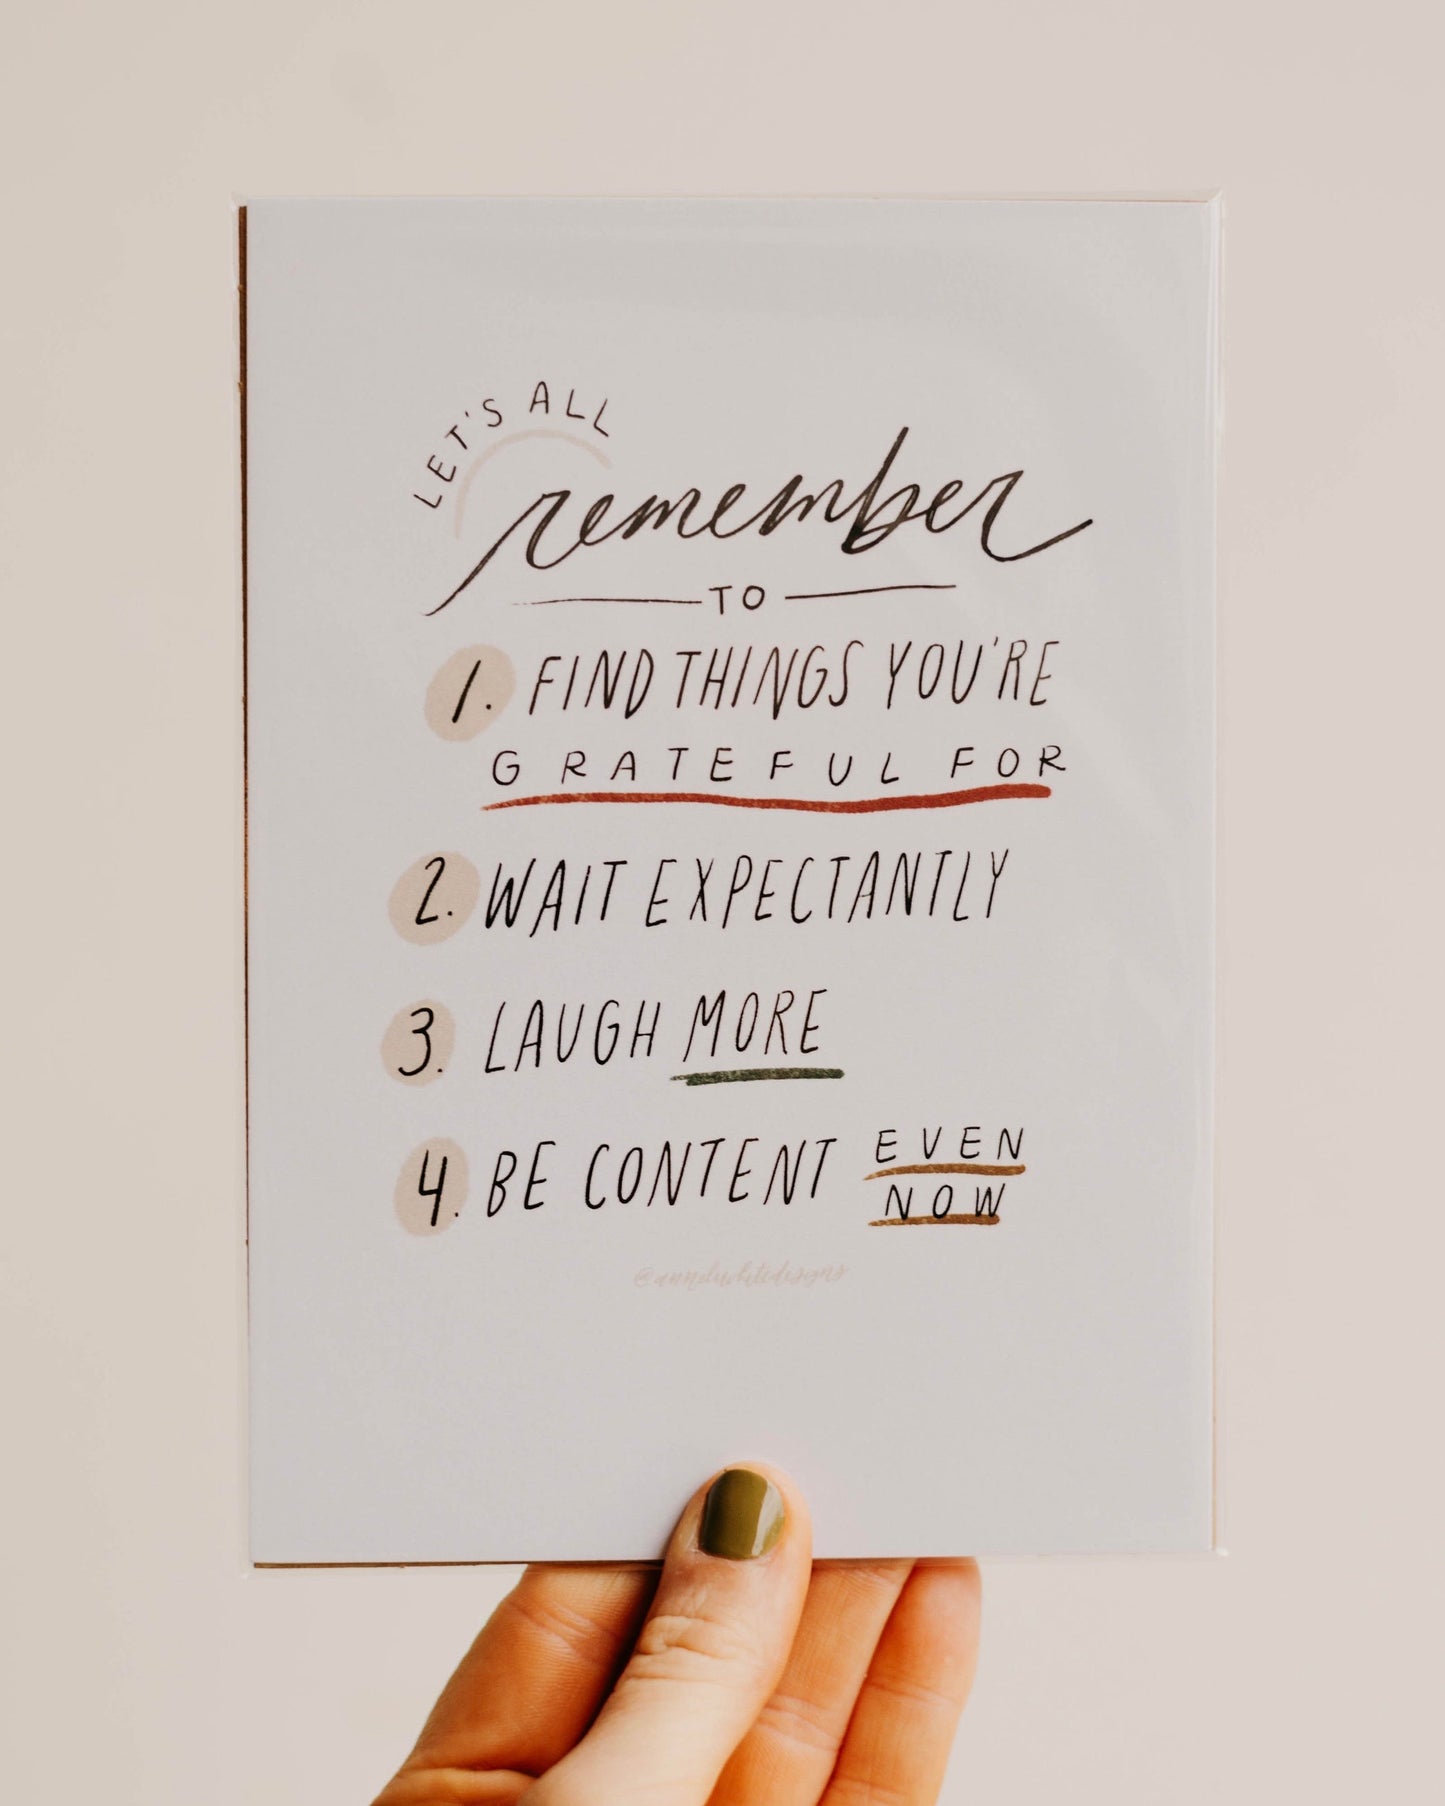 LET'S ALL
remember
TO
1. FIND THINGS YOU'RE
GRATEFUL FOR
2. WAIT EXPECTANTLY
3. LAUGH MORE
4. BE CONTENT EVEN
NOW